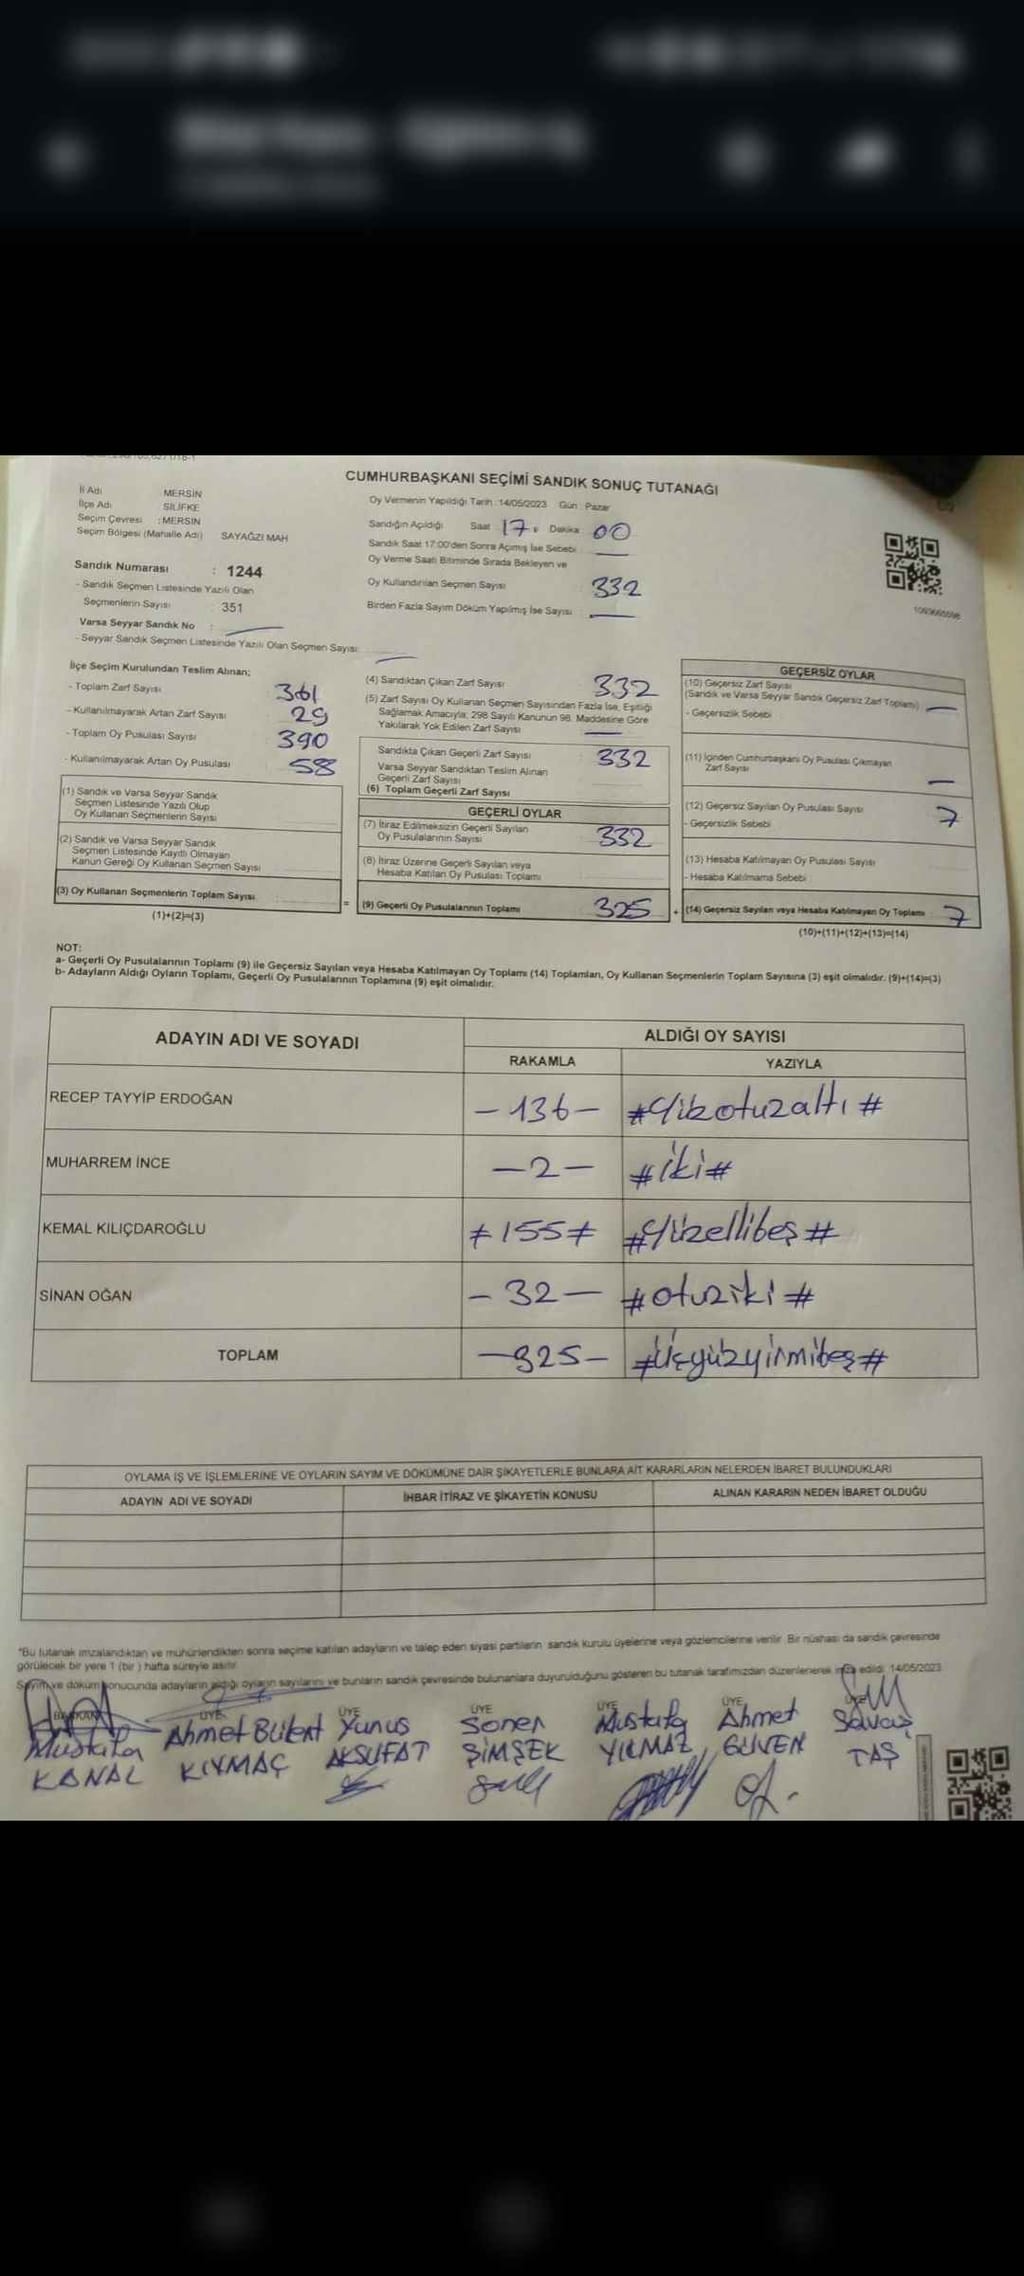 CUMHURBAŞKANI SEÇİMİ SANDIK SONUÇ TUTANAĞI
İl Adı MERSİN
İlçe Adı SİLİFKE
Seçim Çevresi : MERSİN
Seçim Bölgesi (Mahalle Adı) SAYAĞZI MAH
Sandık Numarası : 1244
- Sandık Seçmen Listesinde Yazılı Olan
Seçmenlerin Sayısı : 351
Varsa Seyyar Sandık No :
- Seyyar Sandık Seçmen Listesinde Yazılı Olan Seçmen Sayısı:
Oy Vermenin Yapıldığı Tarih : 14/05/2023 Gün : Pazar
Sandığın Açıldığı Saat 17 : Dakika : 00
Sandık Saat 17:00'den Sonra Açımış İse Sebebi :
Oy Verme Saati Bitiminde Sırada Bekleyen ve
Oy Kullandırılan Seçmen Sayısı : 332
Birden Fazla Sayım Döküm Yapılmış İse Sayısı :
İlçe Seçim Kurulundan Teslim Alınan;
- Toplam Zarf Sayısı : 361
- Kullanılmayarak Artan Zarf Sayısı : 29
- Toplam Oy Pusulası Sayısı : 390
- Kullanılmayarak Artan Oy Pusulası : 58
(1) Sandık ve Varsa Seyyar Sandık
Seçmen Listesinde Yazılı Olup
Oy Kullanan Seçmenlerin Sayısı
(2) Sandık ve Varsa Seyyar Sandık
Seçmen Listesinde Kayıtlı Olmayan
Kanun Gereği Oy Kullanan Seçmen Sayısı
(3) Oy Kullanan Seçmenlerin Toplam Sayısı =
(1)+(2)=(3)
(4) Sandıktan Çıkan Zarf Sayısı : 332
(5) Zarf Sayısı Oy Kullanan Seçmen Sayısından Fazla İse, Eşitliği
Sağlamak Amacıyla, 298 Sayılı Kanunun 98. Maddesine Göre
Yakılarak Yok Edilen Zarf Sayısı
Sandıkta Çıkan Geçerli Zarf Sayısı : 332
Varsa Seyyar Sandıktan Teslim Alınan
Geçerli Zarf Sayısı
(6) Toplam Geçerli Zarf Sayısı
GEÇERLİ OYLAR
(7) İtiraz Edilmeksizin Geçerli Sayılan
Oy Pusulalarının Sayısı : 332
(8) İtiraz Üzerine Geçerli Sayılan veya
Hesaba Katılan Oy Pusulası Toplamı
(9) Geçerli Oy Pusulalarının Toplamı : 325 +
GEÇERSİZ OYLAR
(10) Geçersiz Zarf Sayısı
(Sandık ve Varsa Seyyar Sandık Geçersiz Zarf Toplamı)
- Geçersizlik Sebebi
(11) İçinden Cumhurbaşkanı Oy Pusulası Çıkmayan
Zarf Sayısı
(12) Geçersiz Sayılan Oy Pusulası Sayısı 7
- Geçersizlik Sebebi
(13) Hesaba Katılmayan Oy Pusulası Sayısı
- Hesaba Katılmama Sebebi :
(14) Geçersiz Sayılan veya Hesaba Katılmayan Oy Toplamı : 7
(10)+(11)+(12)+(13)=(14)
NOT:
a- Geçerli Oy Pusulalarının Toplamı (9) ile Geçersiz Sayılan veya Hesaba Katılmayan Oy Toplamı (14) Toplamları, Oy Kullanan Seçmenlerin Toplam Sayısına (3) eşit olmalıdır. (9)+(14)=(3)
b- Adayların Aldığı Oyların Toplamı, Geçerli Oy Pusulalarının Toplamına (9) eşit olmalıdır.
ADAYIN ADI VE SOYADI ALDIĞI OY SAYISI
RAKAMLA YAZIYLA
RECEP TAYYİP ERDOĞAN -136- #Yüzotuzaltı#
MUHARREM İNCE -2- #iki#
KEMAL KILIÇDAROĞLU ≠155≠ #Yüzellibeş#
SİNAN OĞAN -32- #otuziki#
TOPLAM -325- #Üçyüzyirmibeş#
OYLAMA İŞ VE İŞLEMLERİNE VE OYLARIN SAYIM VE DÖKÜMÜNE DAİR ŞİKAYETLERLE BUNLARA AİT KARARLARIN NELERDEN İBARET BULUNDUKLARI
ADAYIN ADI VE SOYADI İHBAR İTİRAZ VE ŞİKAYETİN KONUSU ALINAN KARARIN NEDEN İBARET OLDUĞU
*Bu tutanak imzalandıktan ve mühürlendikten sonra seçime katılan adayların ve talep eden siyasi partilerin sandık kurulu üyelerine veya gözlemcilerine verilir. Bir nüshası da sandık çevresinde
görülecek bir yere 1 (bir) hafta süreyle asılır.
Sayım ve döküm sonucunda adayların aldığı oyların sayılarını ve bunların sandık çevresinde bulunanlara duyurulduğunu gösteren bu tutanak tarafımızdan düzenlenerek imza edildi. 14/05/2023
BAŞKAN ÜYE ÜYE ÜYE ÜYE ÜYE ÜYE
Mustafa Ahmet Bülent Yunus Soner Mustafa Ahmet Savaş
KANAL KIYMAÇ AKSUFAT ŞİMŞEK YILMAZ GÜVEN TAŞ